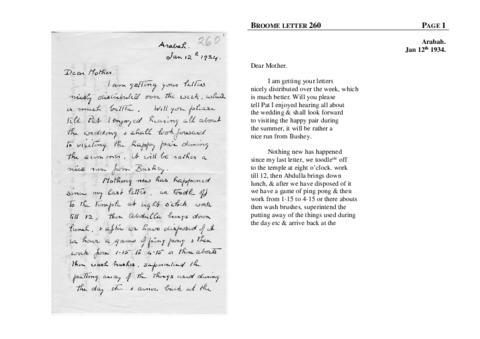 260
Arabah.
Jan 12th 1934.
Dear Mother.
I am getting your letters
nicely distributed over the week, which
is much better. Will you please
tell Pat I enjoyed hearing all about
the wedding & shall look forward
to visiting the happy pair during
the summer, it will be rather a
nice run from Bushey.
Nothing new has happened
since my last letter, we toodle off
to the temple at eight o'clock. work
till 12, then Abdulla brings down
lunch, & after we have disposed of it
we have a game of ping pong & then
work from 1-15 to 4-15 or there abouts
then wash brushes, superintend the
putting away of the things used during
the day etc & arrive back at the
BROOME LETTER 260 PAGE 1
Arabah.
Jan 12th 1934.
Dear Mother.
I am getting your letters
nicely distributed over the week, which
is much better. Will you please
tell Pat I enjoyed hearing all about
the wedding & shall look forward
to visiting the happy pair during
the summer, it will be rather a
nice run from Bushey.
Nothing new has happened
since my last letter, we toodle off
to the temple at eight o'clock. work
till 12, then Abdulla brings down
lunch, & after we have disposed of it
we have a game of ping pong & then
work from 1-15 to 4-15 or there abouts
then wash brushes, superintend the
putting away of the things used during
the day etc & arrive back at the